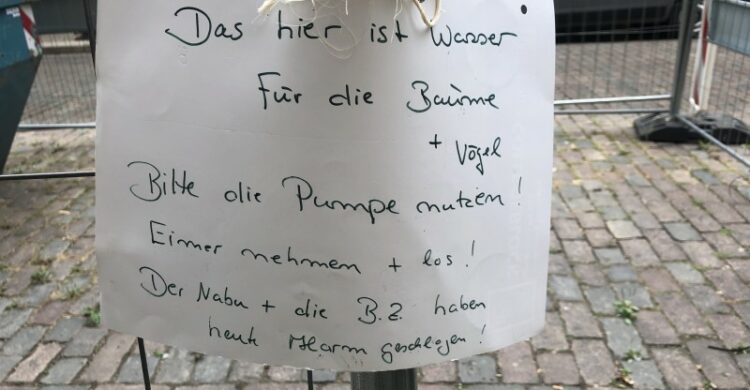 Das hier ist Wasser
Für die Bäume
+ Vögel
Bitte die Pumpe nutzen!
Eimer nehmen + los!
Der Nabu + die B.Z. haben
heute Alarm geschlagen!